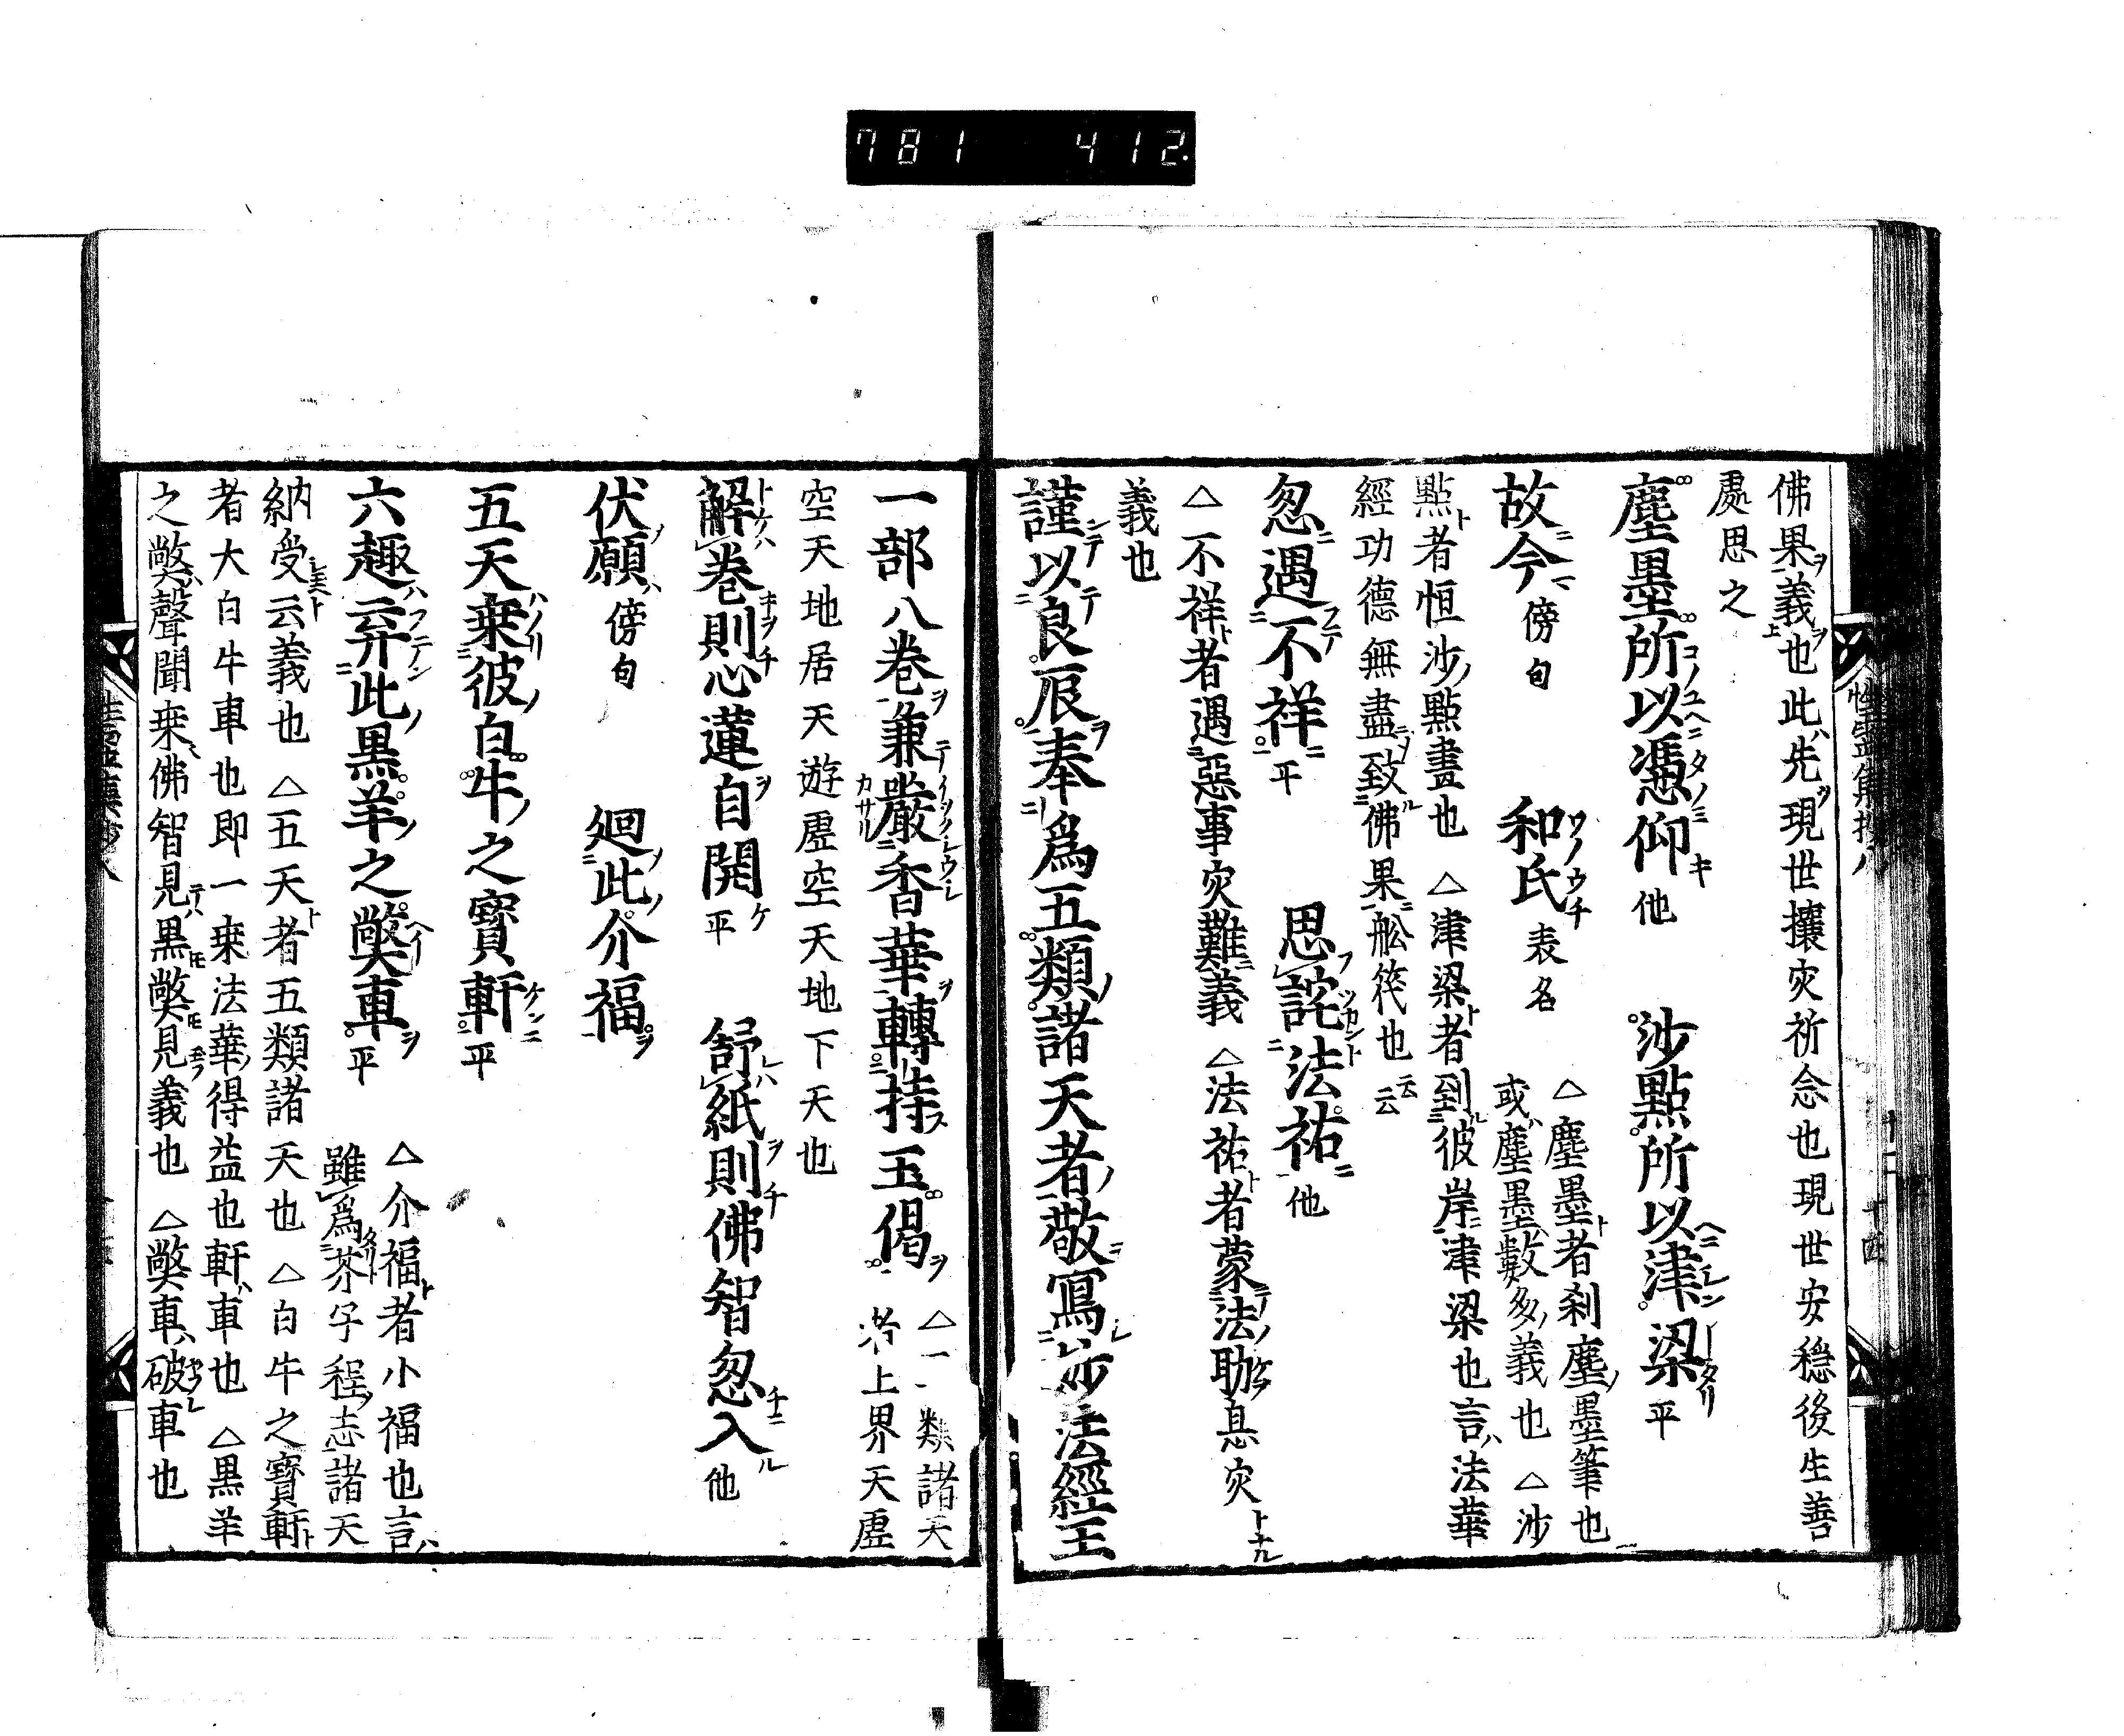 781 412
佛果義也此先現世攘灾祈念也現世安穩後生善
處思之
塵墨所以憑仰他 沙點所以津梁平
故今傍句 和氏表名 △塵墨者刹塵墨筆也
或塵墨數多義也△沙
點者恒沙點畫也△津梁者到彼岸津梁也言法華
經功德無盡致佛果舩筏也云云
忽遇不祥平 思託法祐他
△不祥者遇惡事灾難義△法祐者蒙法助息灾
義也
謹以良辰奉爲五類諸天者敬寫妙法經王
一部八巻兼嚴香華轉持玉偈 △一類諸天
者上界天虛
空天地居天遊虛空天地下天也
解巻則心蓮自開平 舒紙則佛智忽入他
伏願傍句 廻此介福
五天乗彼白牛之寶軒平
六趣弃此黒羊之弊車平 △介福者小福也言
雖爲芥子程志諸天
納受云義也△五天者五類諸天也△白牛之寶軒
者大白牛車也即一乗法華得益也軒車也△黒羊
之弊聲聞乗佛智見黒弊見義也△弊車破車也